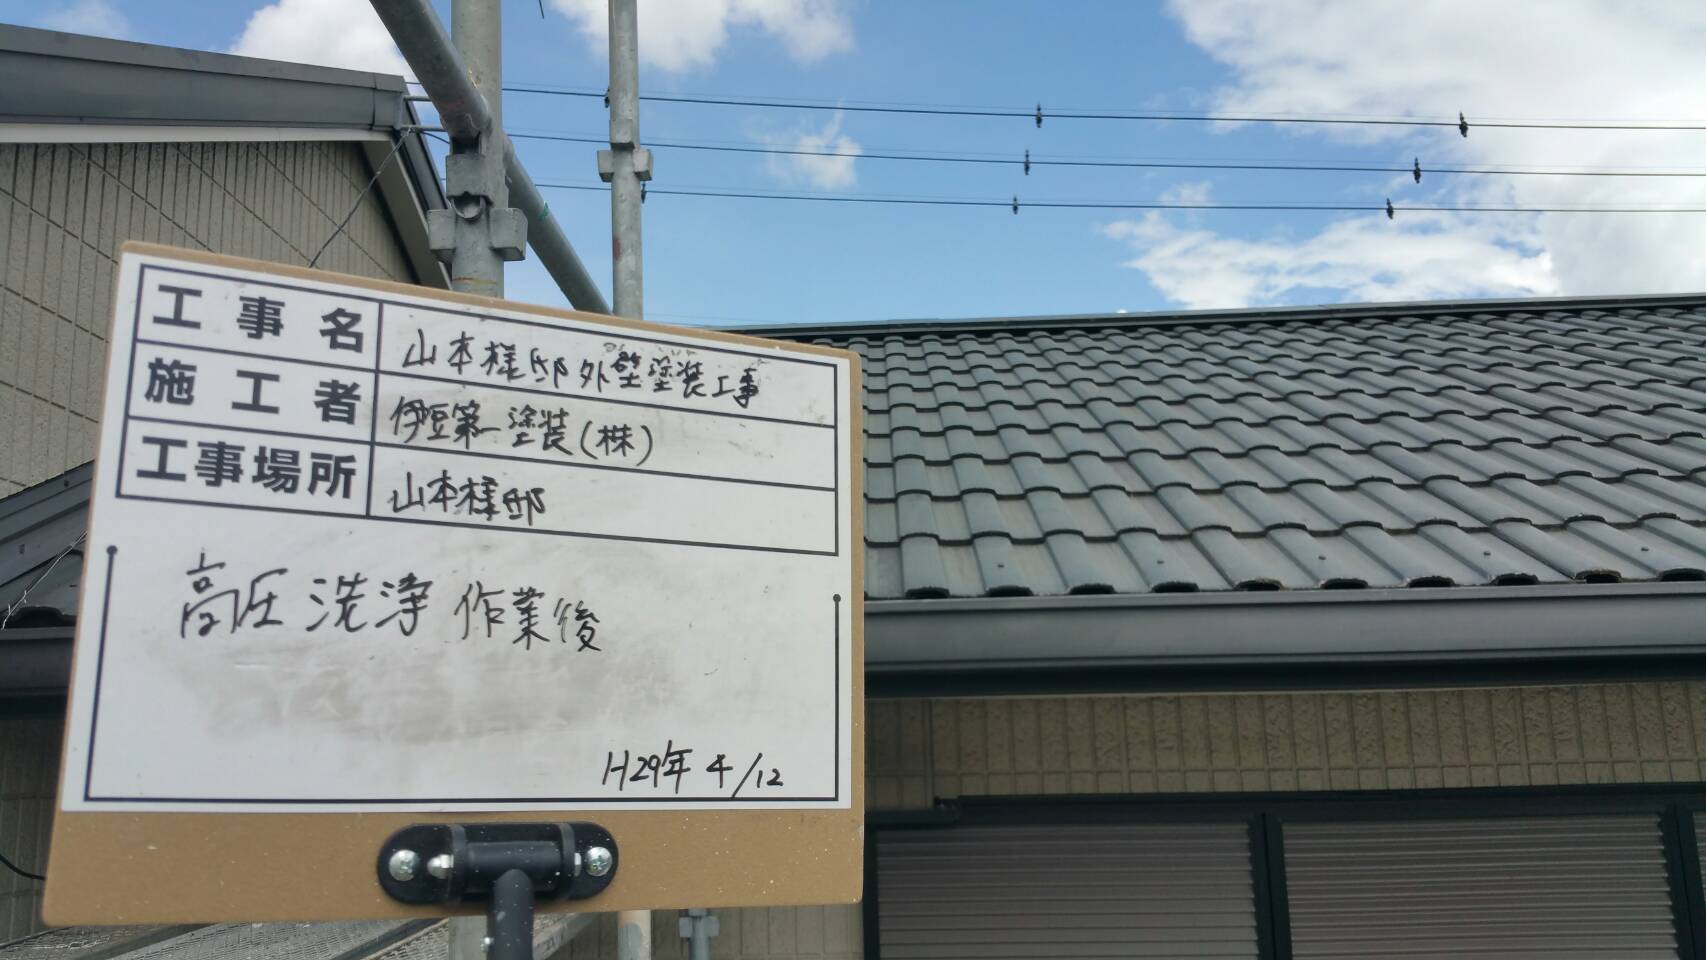 工事名 山本様邸外壁塗装工事
施工者 伊豆第一塗装(株)
工事場所 山本様邸
高圧洗浄作業後
H29年4/12